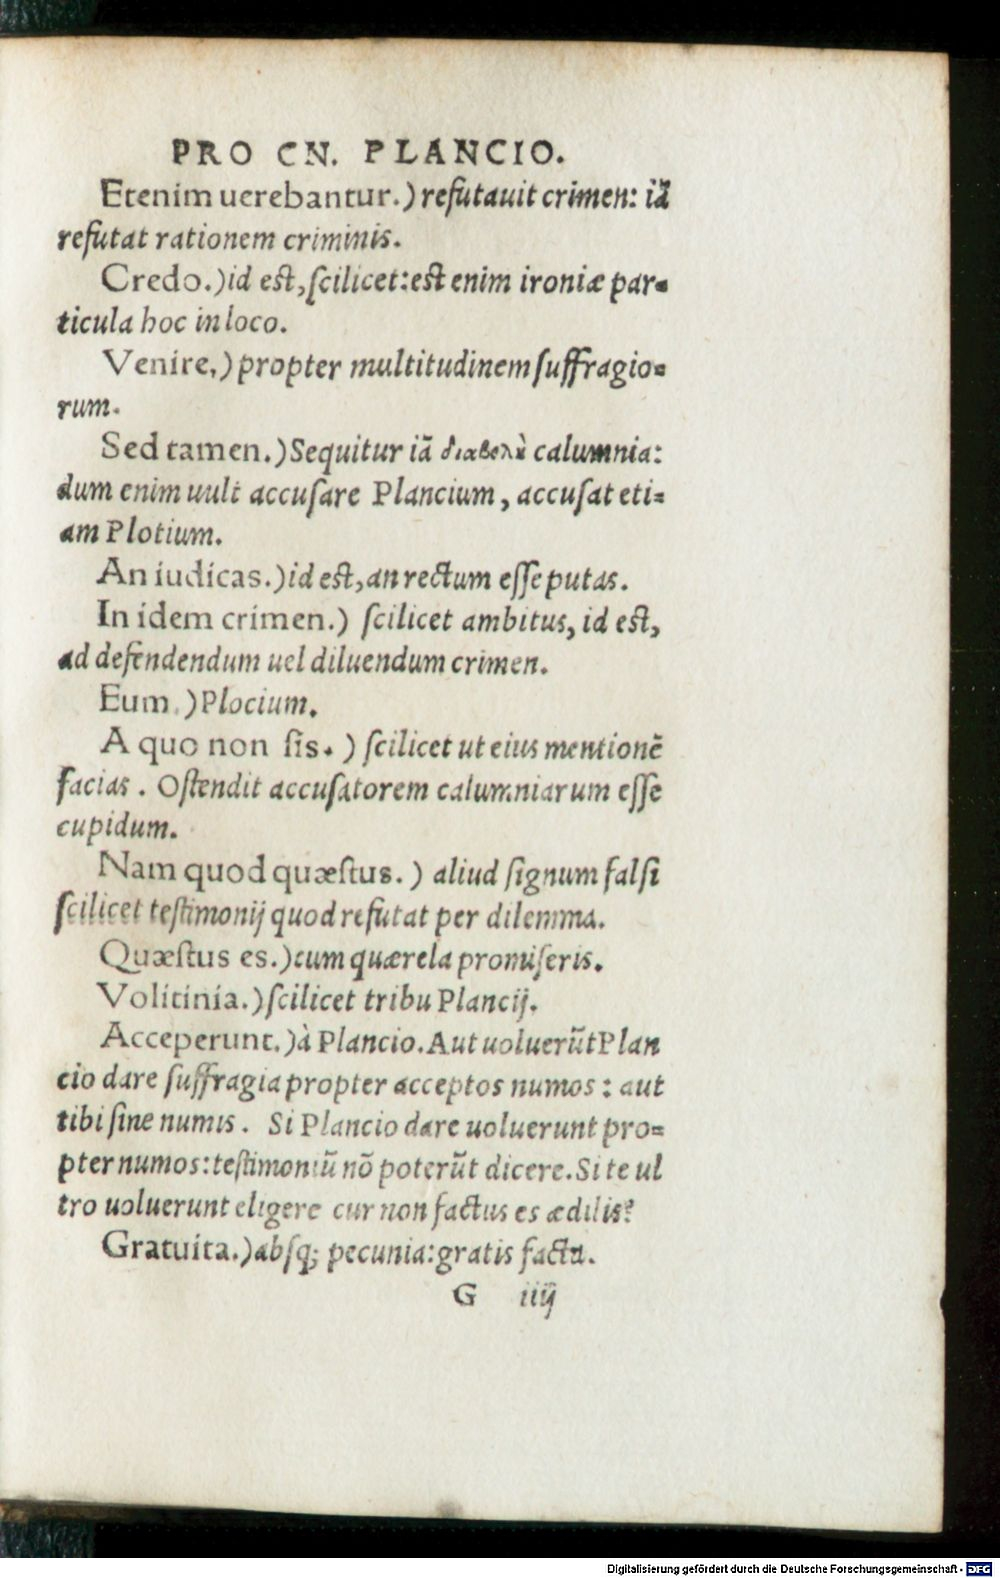 PRO CN. PLANCIO.
Etenim uerebantur.) refutauit crimen: iã
refutat rationem criminis.
Credo.) id est, scilicet: est enim ironiæ par-
ticula hoc in loco.
Venire,) propter multitudinem suffragio-
rum.
Sed tamen.) Sequitur iã διαβολὴ calumnia:
dum enim uult accusare Plancium, accusat eti-
am Plotium.
An iudicas.) id est, an rectum esse putas.
In idem crimen.) scilicet ambitus, id est,
ad defendendum uel diluendum crimen.
Eum.) Plocium.
A quo non sis.) scilicet ut eius mentionẽ
facias. Ostendit accusatorem calumniarum esse
cupidum.
Nam quod quæstus.) aliud signum falsi
scilicet testimonij quod refutat per dilemma.
Quæstus es.) cum quærela promiseris.
Volitinia.) scilicet tribu Plancij.
Acceperunt.) à Plancio. Aut uoluerũt Plan
cio dare suffragia propter acceptos numos: aut
tibi sine numis. Si Plancio dare uoluerunt pro-
pter numos: testimoniũ nõ poterũt dicere. Si te ul
tro uoluerunt eligere cur non factus es ædilis?
Gratuita.) absq; pecunia: gratis facta.
G iiij
Digitalisierung gefördert durch die Deutsche Forschungsgemeinschaft - DFG